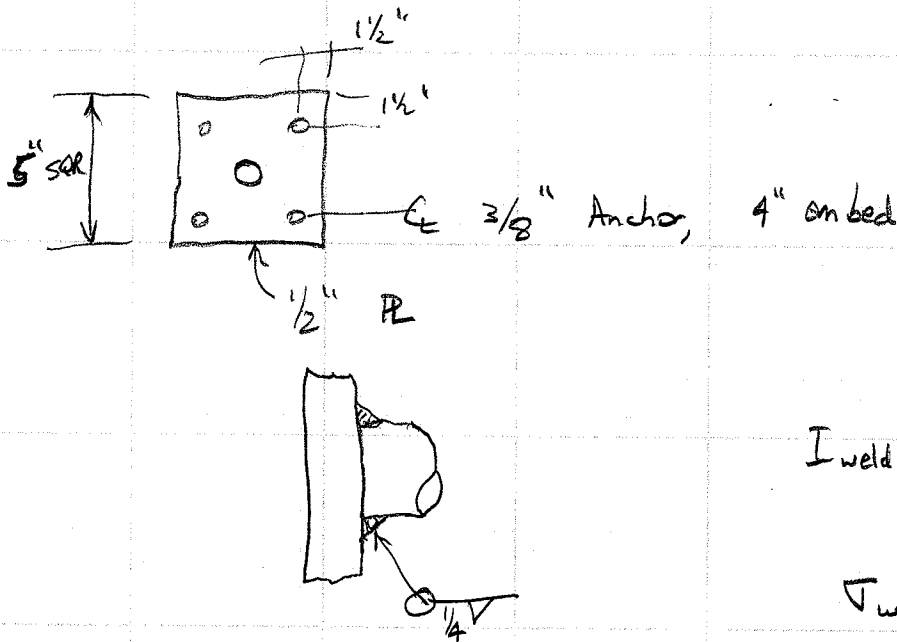 1 1/2"
1 1/2"
5" SQR
℄ 3/8" Anchor, 4" embed
1/2" PL
I weld
1/4
σ w